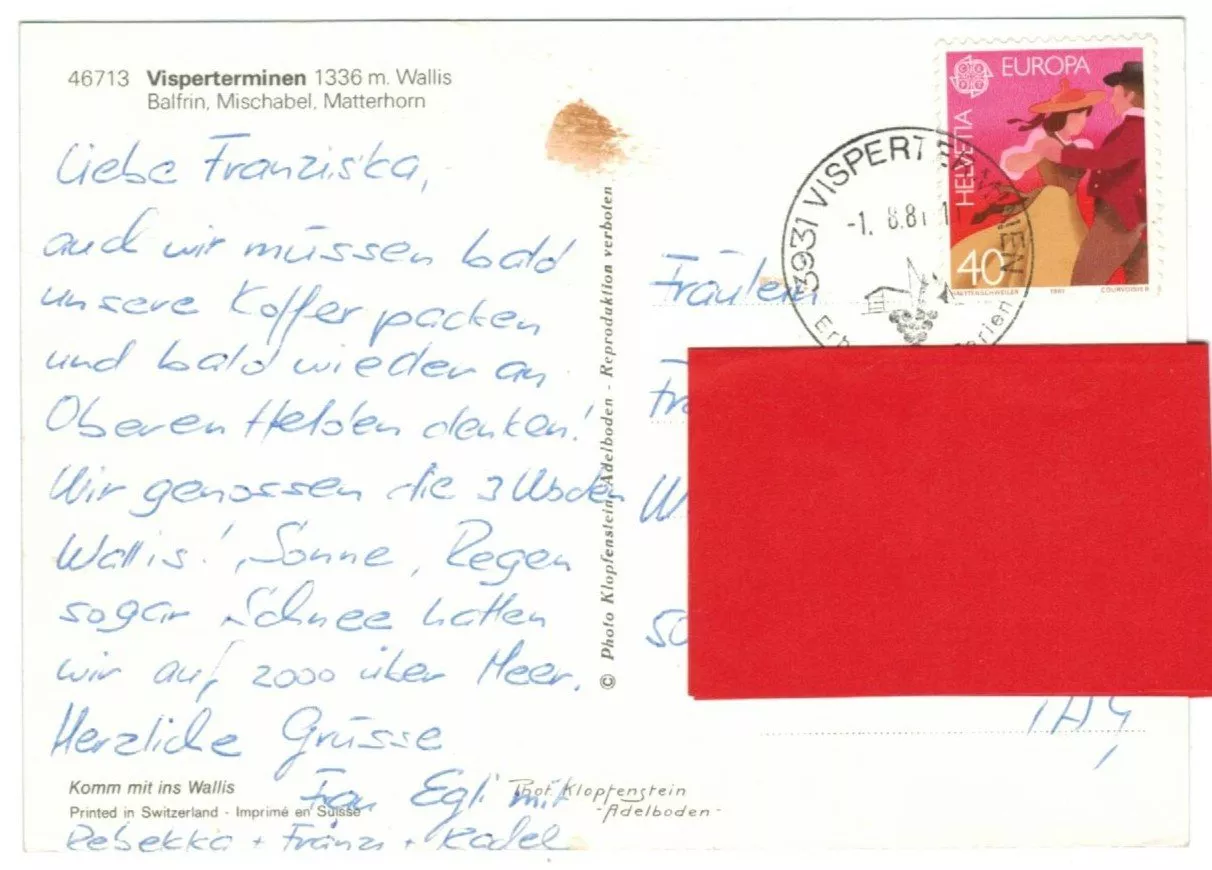 46713 Visperterminen 1336 m. Wallis
Balfrin, Mischabel, Matterhorn
Liebe Franziska,
auch wir müssen bald
unsere Koffer packen
und bald wieder an
Oberen Helden denken!
Wir genossen die 3 Wochen
Wallis! Sonne, Regen
sogar Schnee hatten
wir auf 2000 über Meer.
Herzliche Grüsse
Frau Egli mit
Rebekka + Fränzi +
Komm mit ins Wallis
Printed in Switzerland - Imprimé en Suisse
Phot. Klopfenstein
-Adelboden-
© Photo Klopfenstein, Adelboden - Reproduktion verboten
HELVETIA
EUROPA
CEPT
40
HATTENSCHWEILER 1981 COURVOISIER
3931 VISPERTERMINEN
-1. 8.81
Fräulein